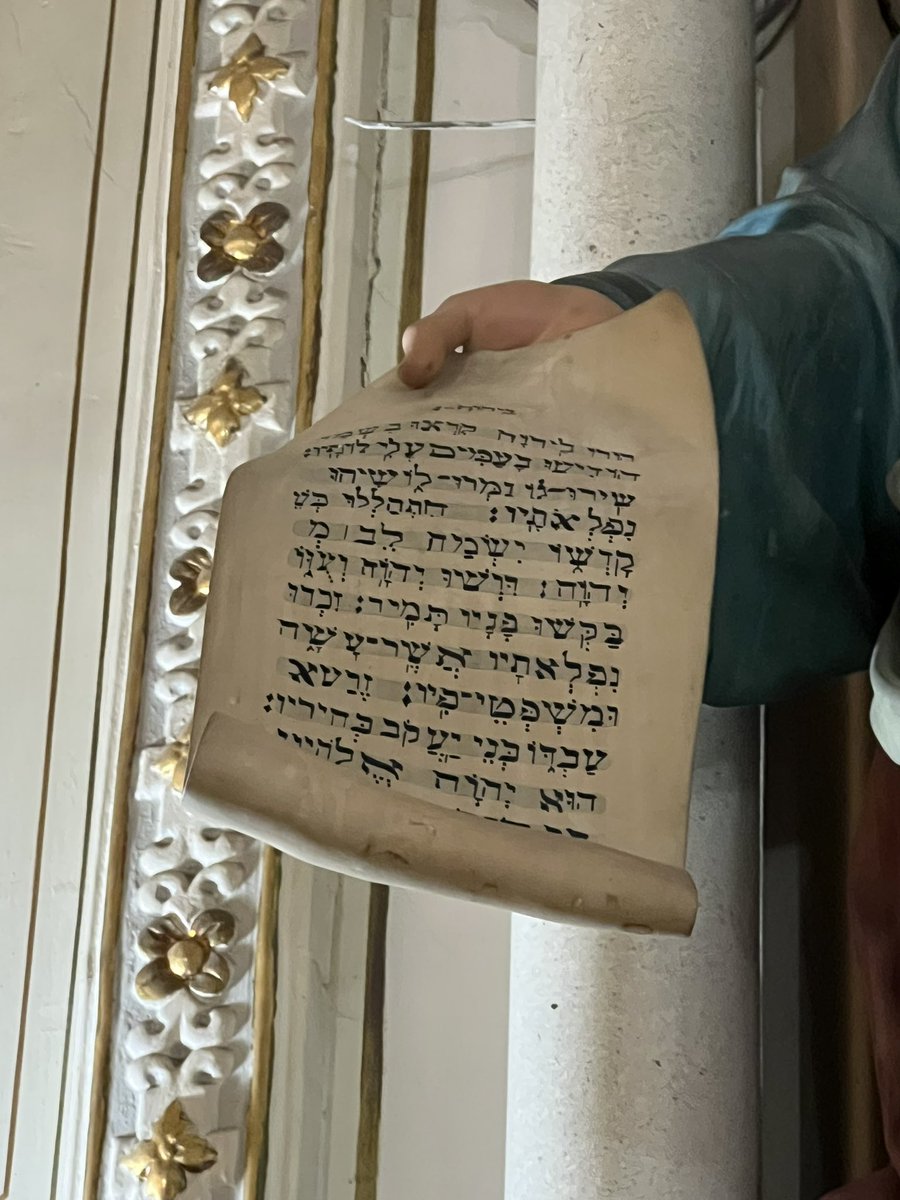 הודו ליהוה קראו בשמו
הודישו בעמים עלילותיו:
שירו־לו זמרו־לו שיהו
נִפְלְאֹתָיו: התהללו בְּשֵׁ
קָדְשׁוֹ יִשְׂמַח לֵב׀ מְ
יְהוָֹה: דּוְשׁוּ יְהוָֹה וְעֻזּוֹ
בַּקְּשׁוּ פָנָיו תָּמִיר: זִכְרוּ
נִפְלְאֹתָיו אֲשֶׁר־עָשָׂה
וּמִשְׁפְּטֵי־פִיו: זֶרַע א
עַבְדּוֹ בְּנֵי יַעֲקֹב בְּחִירָיו:
הוּא יְהוָֹה אֱלֹהֵינוּ